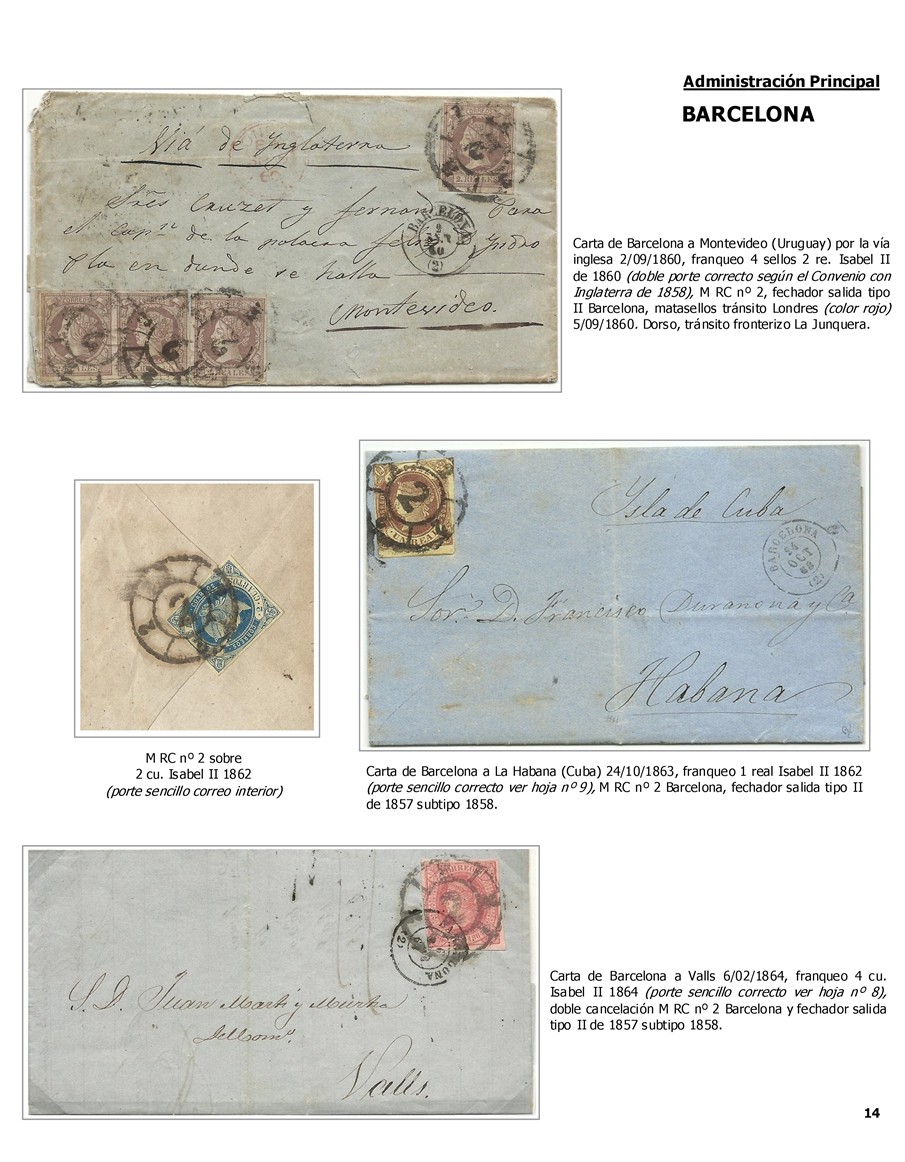 Administración Principal
BARCELONA
Viá de Inglaterra
2 REALES
BARCELONA
2
60
(2)
Sres Cruzet y
de la polacra
Pla en dunde se halla
Montevideo.
CORREOS
CORREOS
Carta de Barcelona a Montevideo (Uruguay) por la vía
inglesa 2/09/1860, franqueo 4 sellos 2 re. Isabel II
de 1860 (doble porte correcto según el Convenio con
Inglaterra de 1858), M RC nº 2, fechador salida tipo
II Barcelona, matasellos tránsito Londres (color rojo)
5/09/1860. Dorso, tránsito fronterizo La Junquera.
2
M RC nº 2 sobre
2 cu. Isabel II 1862
(porte sencillo correo interior)
2
UN REAL
Isla de Cuba
BARCELONA
24
OCT
63
(2)
Sor. D. Francisco Duranona y Ca
Habana
Carta de Barcelona a La Habana (Cuba) 24/10/1863, franqueo 1 real Isabel II 1862
(porte sencillo correcto ver hoja nº 9), M RC nº 2 Barcelona, fechador salida tipo II
de 1857 subtipo 1858.
CORREOS
BARCELONA
(2)
S. D. Juan Marti y
Valls.
Carta de Barcelona a Valls 6/02/1864, franqueo 4 cu.
Isabel II 1864 (porte sencillo correcto ver hoja nº 8),
doble cancelación M RC nº 2 Barcelona y fechador salida
tipo II de 1857 subtipo 1858.
14